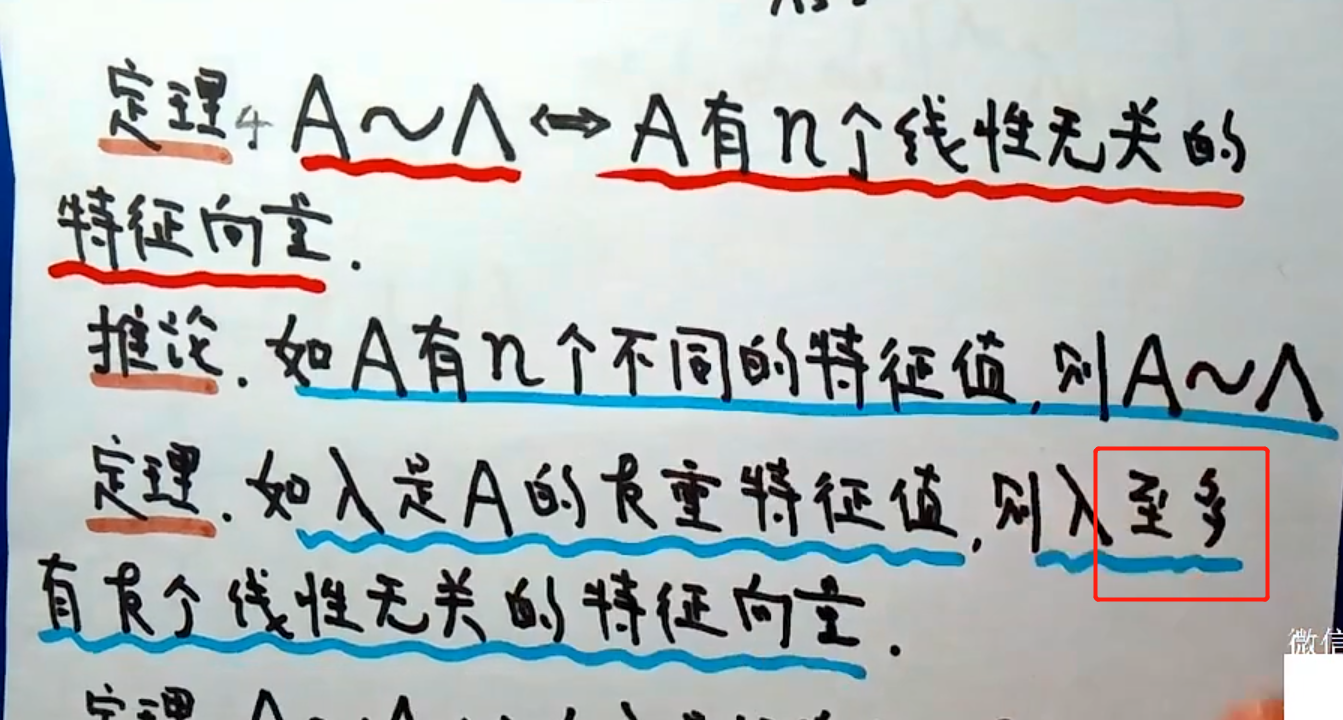 定理. A~Λ ⟺ A有n个线性无关的
特征向量.
推论. 如A有n个不同的特征值,则A~Λ
定理. 如λ是A的k重特征值,则λ至多
有k个线性无关的特征向量.
定理
微信